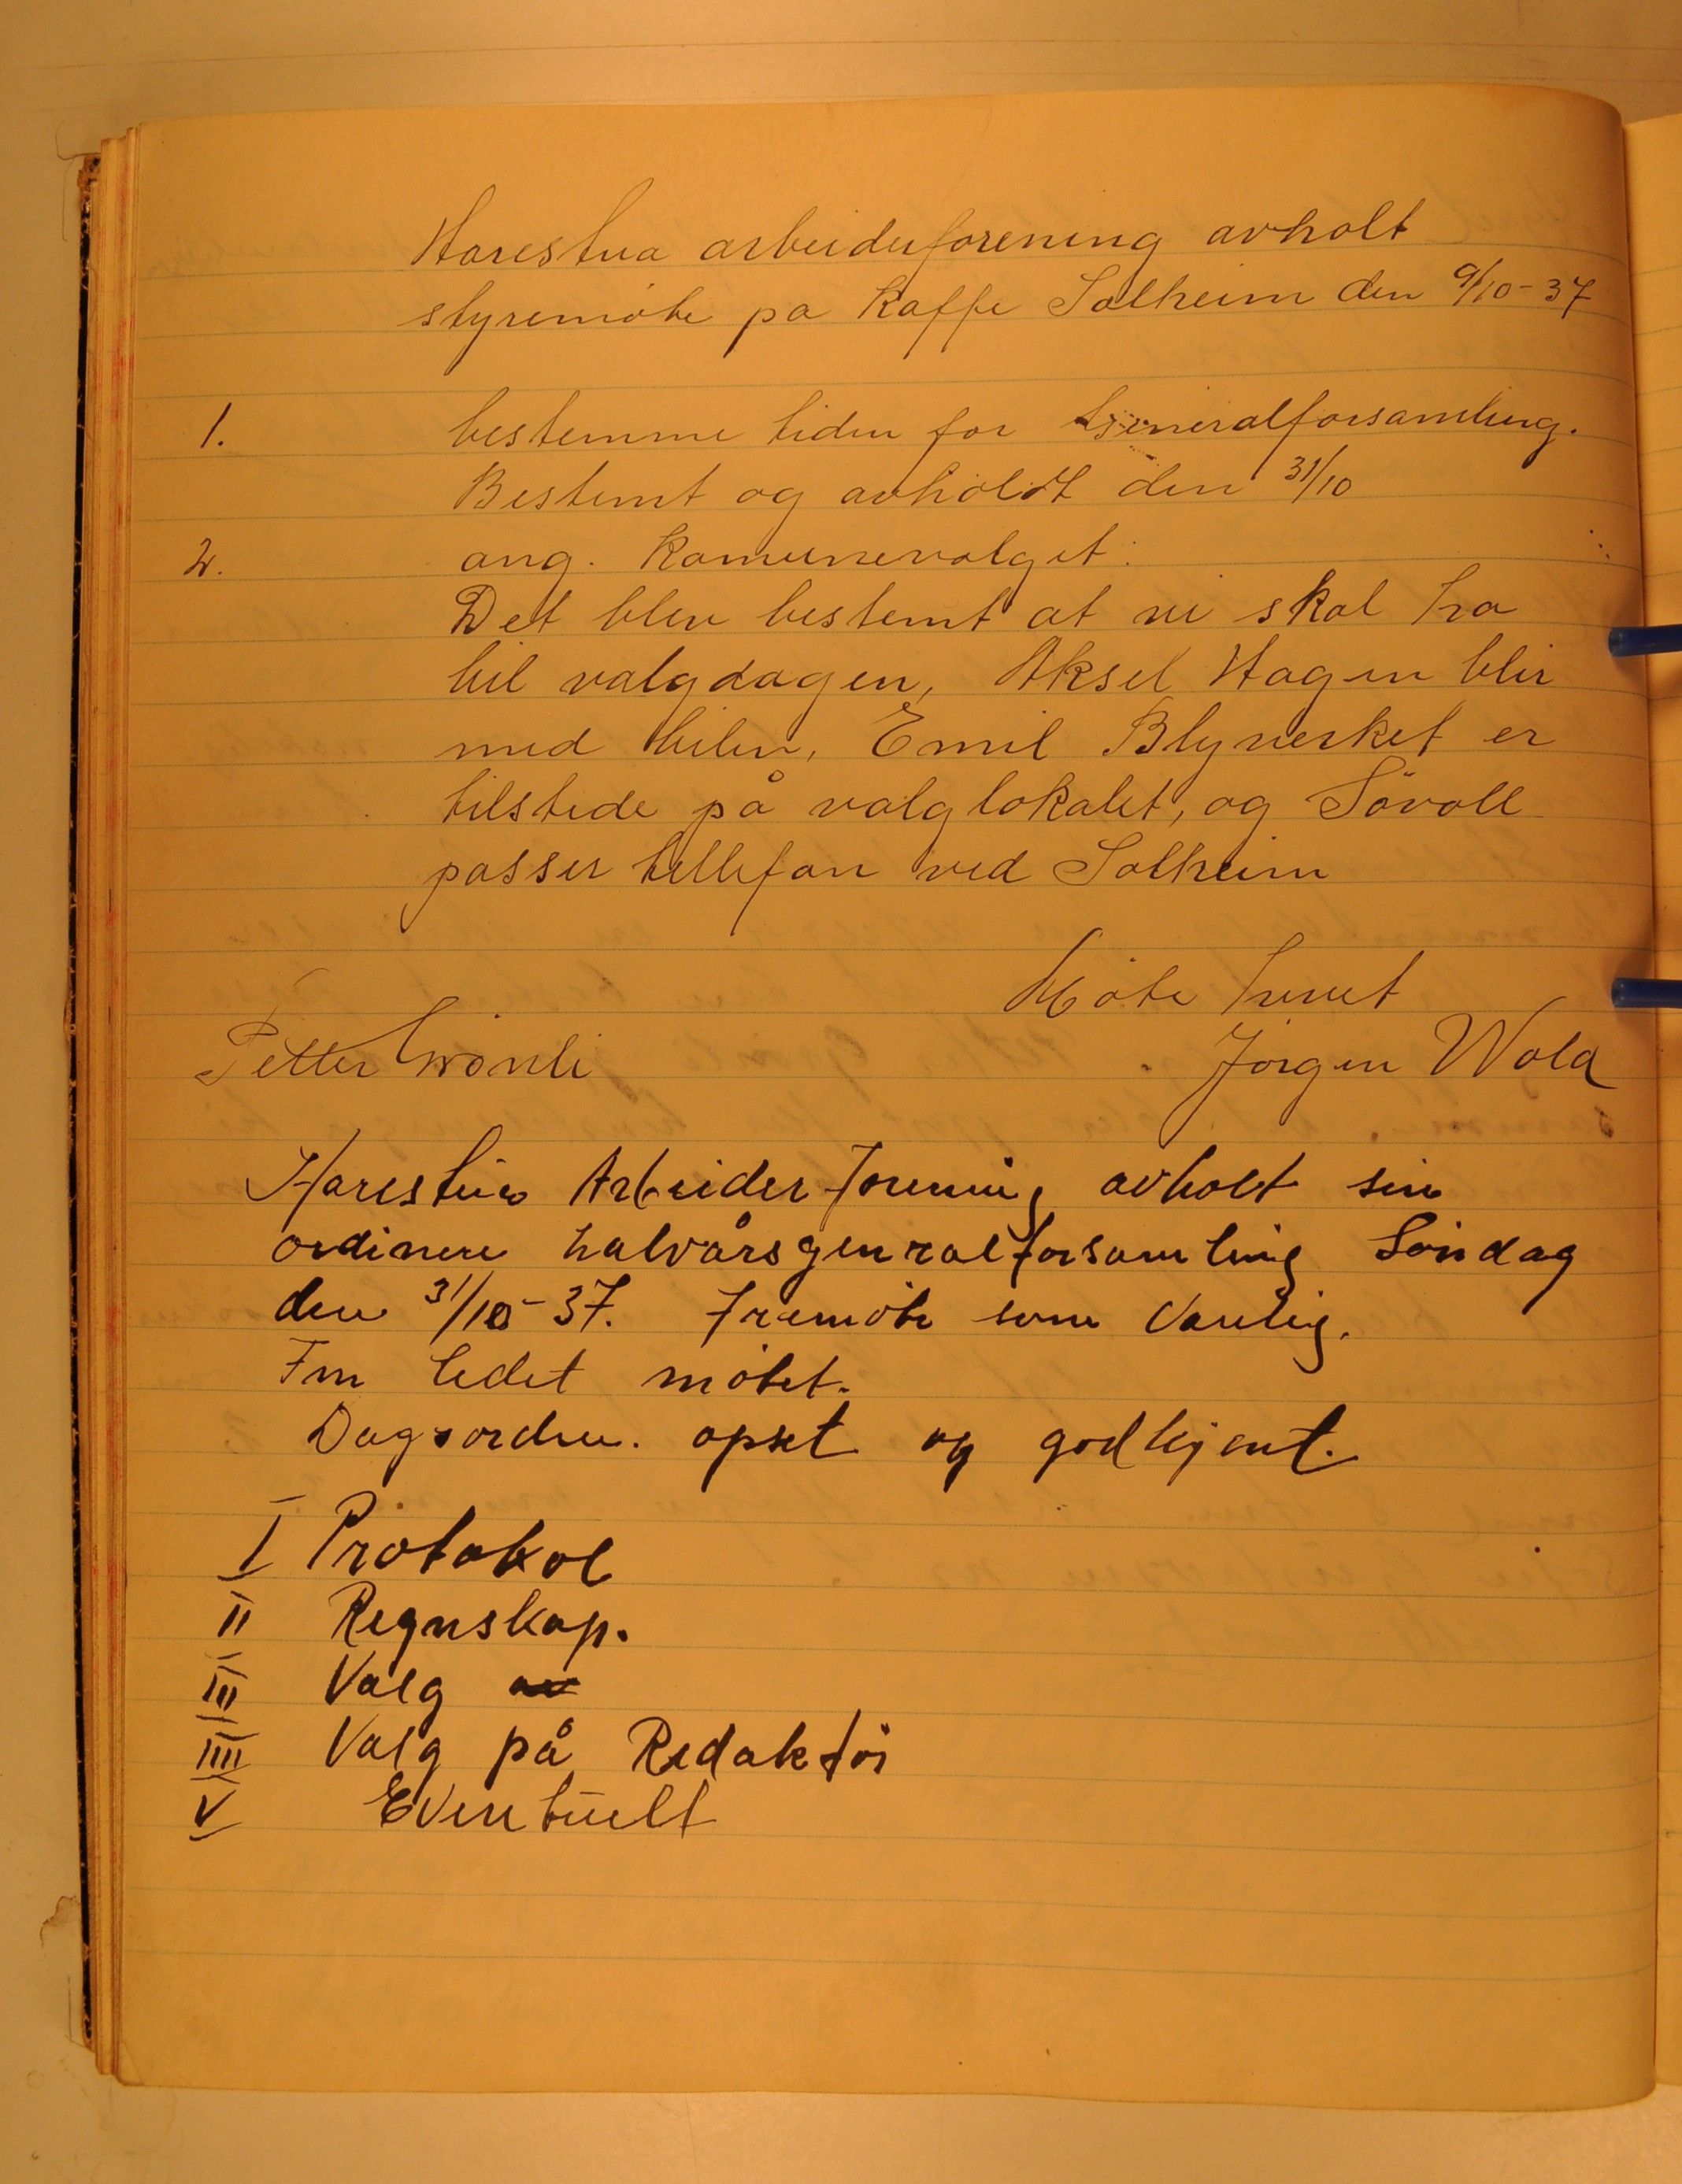 Harestua arbeiderforening avholt
styremöte pa Kaffe Solheim den 9/10-37
1. bestemme tiden for Generalforsamling.
Bestemt og avholdt den 31/10
2. ang. Komunevalget.
Det blev bestemt at vi skal ha
bil valgdagen, Aksel Hagen blir
med bilen, Emil Blyverket er
tilstede på valglokalet, og Sövoll
passer tellefon ved Solheim
Möte hevet
Petter Grönli Jörgen Wold
Harestua Arbeiderforening avholt sin
ordinere halvårsgenralforsamling Söndag
den 31/10-37. Fremöte som Vanlig.
Fm ledet mötet.
Dagsorden. opset og godkjent.
I Protokol
II Regnskap.
III Valg av
IIII Valg på Redaktör
V Eventuelt